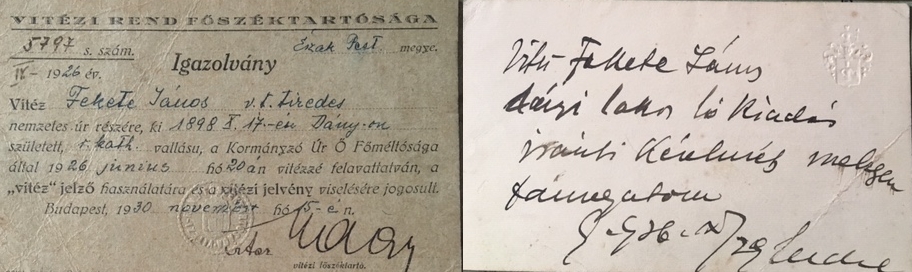 VITÉZI REND FŐSZÉKTARTÓSÁGA
5797 s. szám. Észak Pest megye.
IX - 1926 év.
Igazolvány
Vitéz Fekete János v. t. tizedes
nemzetes úr részére, ki 1898 I. 17-én Dány-on
született, r. kath. vallásu, a Kormányzó Úr Ő Főméltósága
által 1926 junius hó 20án vitézzé felavattatván, a
„vitéz" jelző használatára és a vitézi jelvény viselésére jogosult.
Budapest, 1930 november hó 5-én.
vitézi főszéktartó.
Vitéz Fekete János
dányi lakos ló kiadás
iránti kérelmét melegen
támogatom